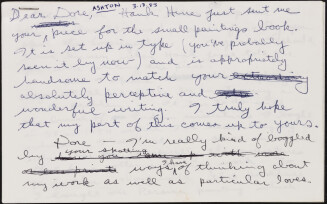 ASHTON 3.17.83
Dear Dore, — Hank Hine just sent me
your piece for the small paintings book.
It is set up in type (you've probably
seen it by now) and is appropriately
handsome to match your
absolutely perceptive and
wonderful writing. I truly hope
that my part of this comes up to yours.
Dore — I'm really kind of boggled
by your spotting
ways of thinking about
my work as well as particular loves.